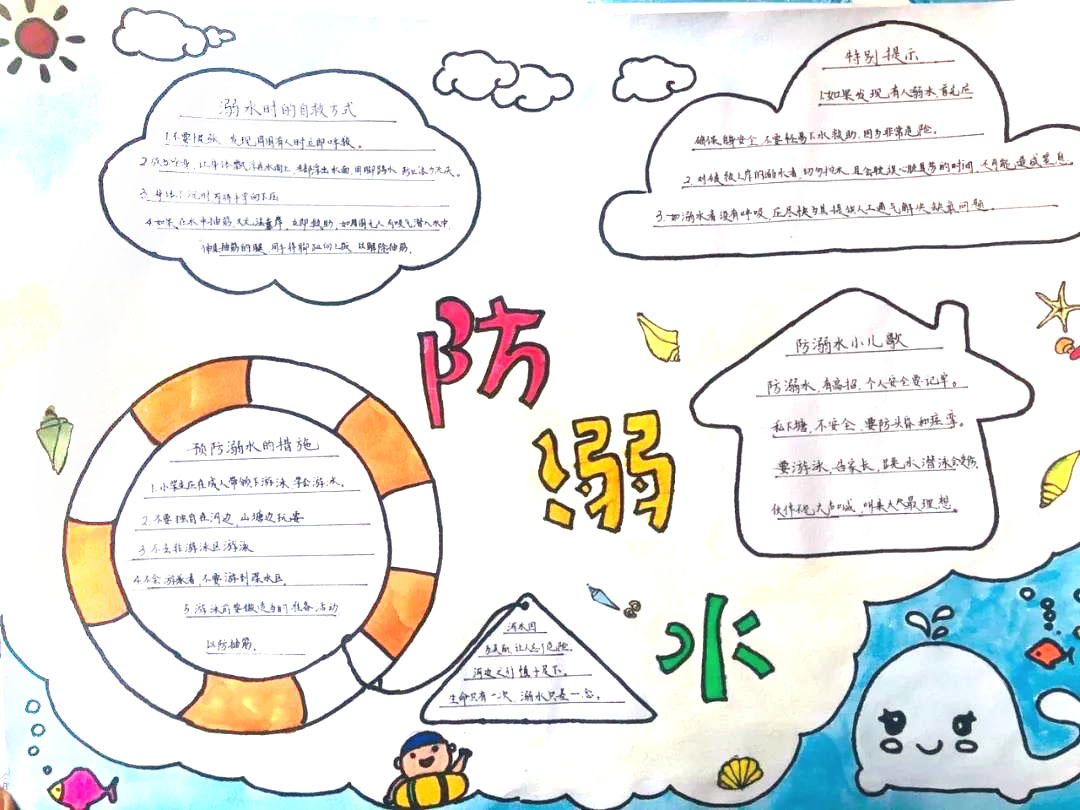 溺水时的自救方式
1.不要慌张，发现周围有人时立即呼救。
2.放松全身，让身体飘浮在水面上，将头部浮出水面，用脚踢水，防止体力丧失。
3.身体下沉时，可将手掌向下压
4.如果在水中抽筋，又无法靠岸，立即救助，如周围无人，可吸气潜入水中，
伸直抽筋的腿，用手将脚趾向上扳，以解除抽筋。
特别提示
1.如果发现有人溺水首先应
确保自身安全，不要轻易下水救助，因为非常危险。
2.对被救上岸的溺水者，切勿控水，且会耽误心肺复苏的时间，还可能造成窒息
3.如溺水者没有呼吸，应尽快为其提供人工通气解决缺氧问题。
预防溺水的措施
1.小学生应在成人带领下游泳，学会游水。
2.不要独自在河边，山塘边玩耍
3.不去非游泳区游泳
4.不会游泳者，不要游到深水区，
5.游泳前要做适当的准备活动
以防抽筋。
防溺水
防溺水小儿歌
防溺水，有高招，个人安全要记牢。
私下塘，不安全，要防头昏和痉挛。
要游泳，告家长，跳水潜泳会受伤。
伙伴 大声喊，叫来大人最理想。
河水
让人忘了危险。
河边之行慎于足下。
生命只有一次，溺水只是一念。